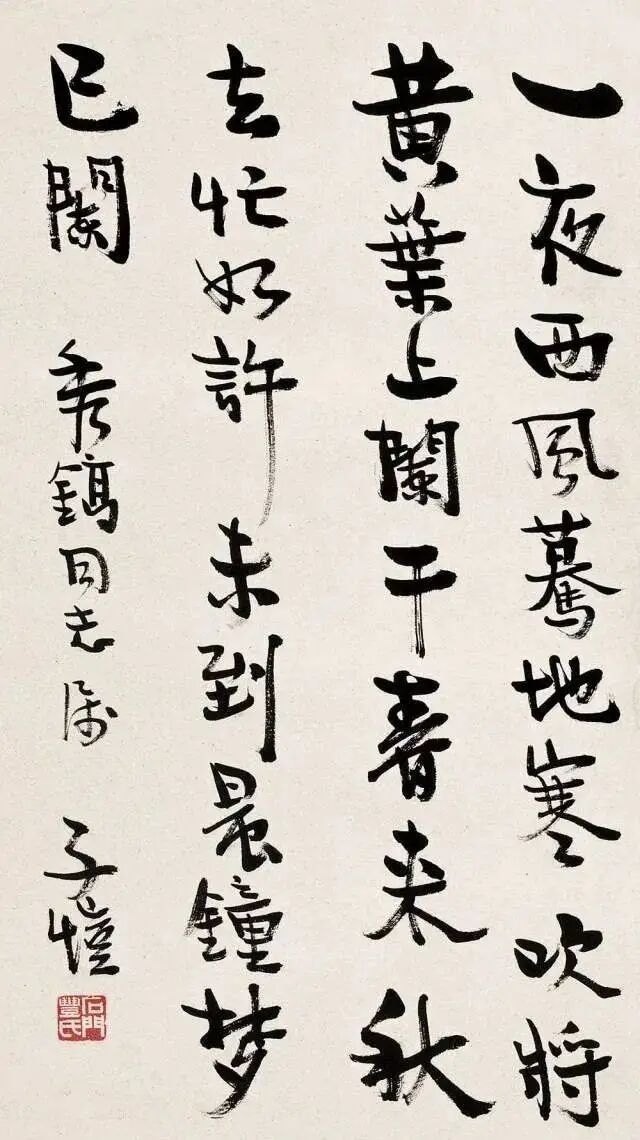 一夜西風驀地寒吹將
黄葉上闌干春来秋
去忙如許未到晨鐘梦
已闌 秀鎬同志属 子愷
石門豐氏